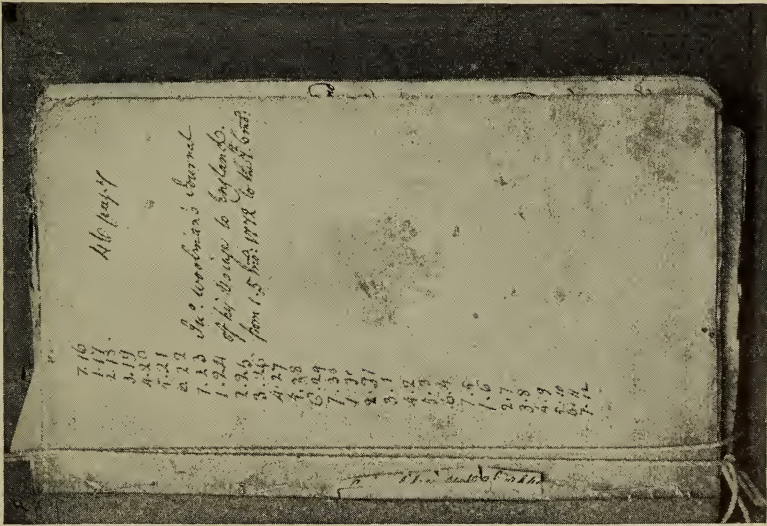 46 pages
Jno. Woolman's Journal
of his Voiage to England
from 1. 5 mo: 1772 to the 7. 6 mo:
7.16
1.17
2.18
3.19
4.20
5.21
6.22
7.23
1.24
2.25
3.26
4.27
5.28
6.29
7.30
2.31
3.1
4.2
5.3
6.4
7.5
1.6
2.7
3.8
4.9
5.10
6.11
7.12